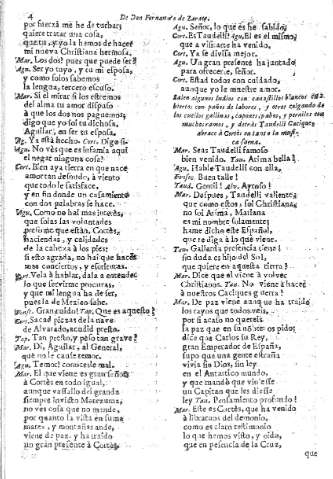 4
De Don Fernando de Zarate.
por fuerza me he de turbar;
quiere tratar una cosa,
que tu, y yo la hemos de hacer
mi nueva Christiana hermosa.
Mar. Los dos? pues que puede ser?
Agu. Ser yo tuyo, y tu mi esposa,
y como solos sabemos
la lengua, tercero escuso.
Mar. Si el mirar à los estremos
del alma tu amor dispuso
à que los dos nos paguemos,
digo que yo soi tu dichosa.
Aguilar, en ser tu esposa.
Ag. Ya està hecho. Cort. Digo si.
Agu. No vès que es infamia aqui
el negar ninguna cosa?
Cort. Bien aya tierra en que nace
amor tan desnudo, à viento
que todo le satisface,
y en fin donde un casamiento
con dos palabras se hace.
Agu. Como no hai mas interès,
que solas las voluntades
presumo que estàn, Cortès,
haciendas, y calidades
de la cabeza à los pies:
si esto agrada, no hai que hacer
mas conciertos, y escusencias.
la lengua ha de ser,
puesla de Marino sabe.
de Alvarado, acudid presto.
Tap. Tan presto, peso tan grave?
Mar. Di, Aguilar, al General,
que no le cause temor.
Agu. Temor? conoceisle mal.
Mar. El que viene es gran señor,
à Cortès en todo igual,
aunque vassallo del grande
siempre invicto Motezuma,
no ves cosa que no mande,
por quanto la vista en suma
mares, y montañas ande,
viene de paz, y ha traido
un gran presente à Cortès.
Agu. Señor, lo que es he sabido;
Cort. Es Taudelli? Agu. El es el mismo,
que a visitarte ha venido,
Cor. Ya se divisa mejor.
Agu. Un gran presente ha juntado
para ofrecerte, señor.
Cor. Estad todos con cuidado,
aunque yo le muestre amor.
Salen algunos Indios con canastillos blancos cubiertos con paños de labores, y otros colgando de los cuellos gallinas, capones, pabos, y pernìles con muchos ramos, y detràs Taudelli Cacique, abrace à Cortès en tanto la musica suena.
Mar. Seas Taudelli famoso
bien venido. Tau. Marina bella!
Agu. Hable Taudelli con ella,
Pinòso. Buen talle!
Taud. Gentil! Alv. Ayroso!
Mar. Despues, Taudelli valiente,
que como estos, soi Christiana,
no soi Marina, Mariana
es mi nombre solamente;
hame dicho este Español,
que te diga à lo que viene.
Tau. Gallarda presencia tiene!
sin duda es hijo del Sol,
que quiere en aquesta tierra?
Mar. Dice que el viene à volver
Christianos. Tau. No viene à hacer
à nuestros Caciques guerra?
Mar. De paz viene aunque ha traido
los rayos que todos visteis,
por si acaso no quereis
la paz que en su nombre os pido:
dice que Carlos su Rey,
gran Emperador de España,
supo que una gente estraña
vivia sin Dios, sin ley
en el Antartico mundo,
y que mandò que viniesse
un Capitan que les diesse
ley. Tau. Pensamiento profundo!
Mar. Este es Cortès, que ha venido
à libraros del demonio,
como es claro testimonio
lo que hemos visto, y oido,
que en presencia de la Cruz,
que